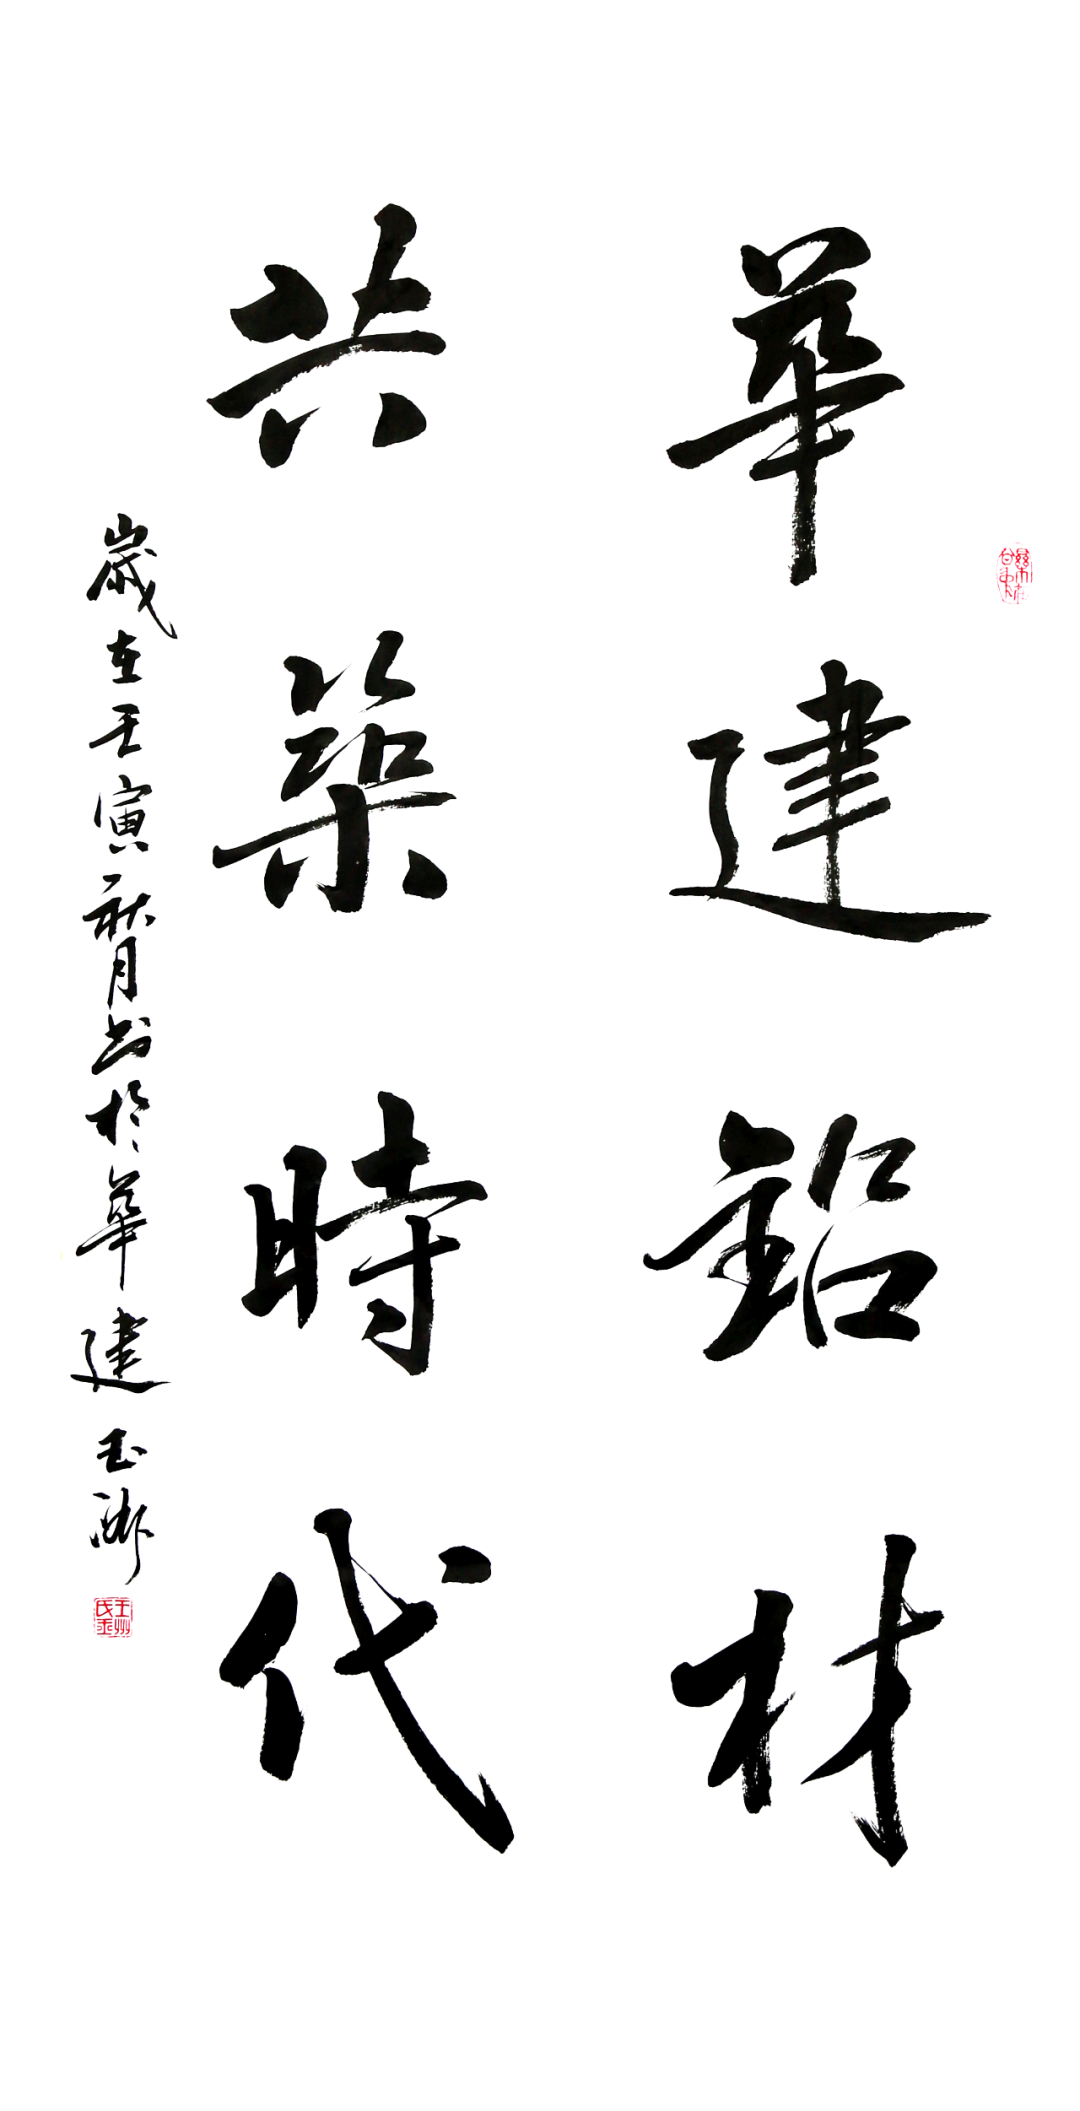 華建鋁材
共築時代
歲在壬寅秋月書於華建玉洲